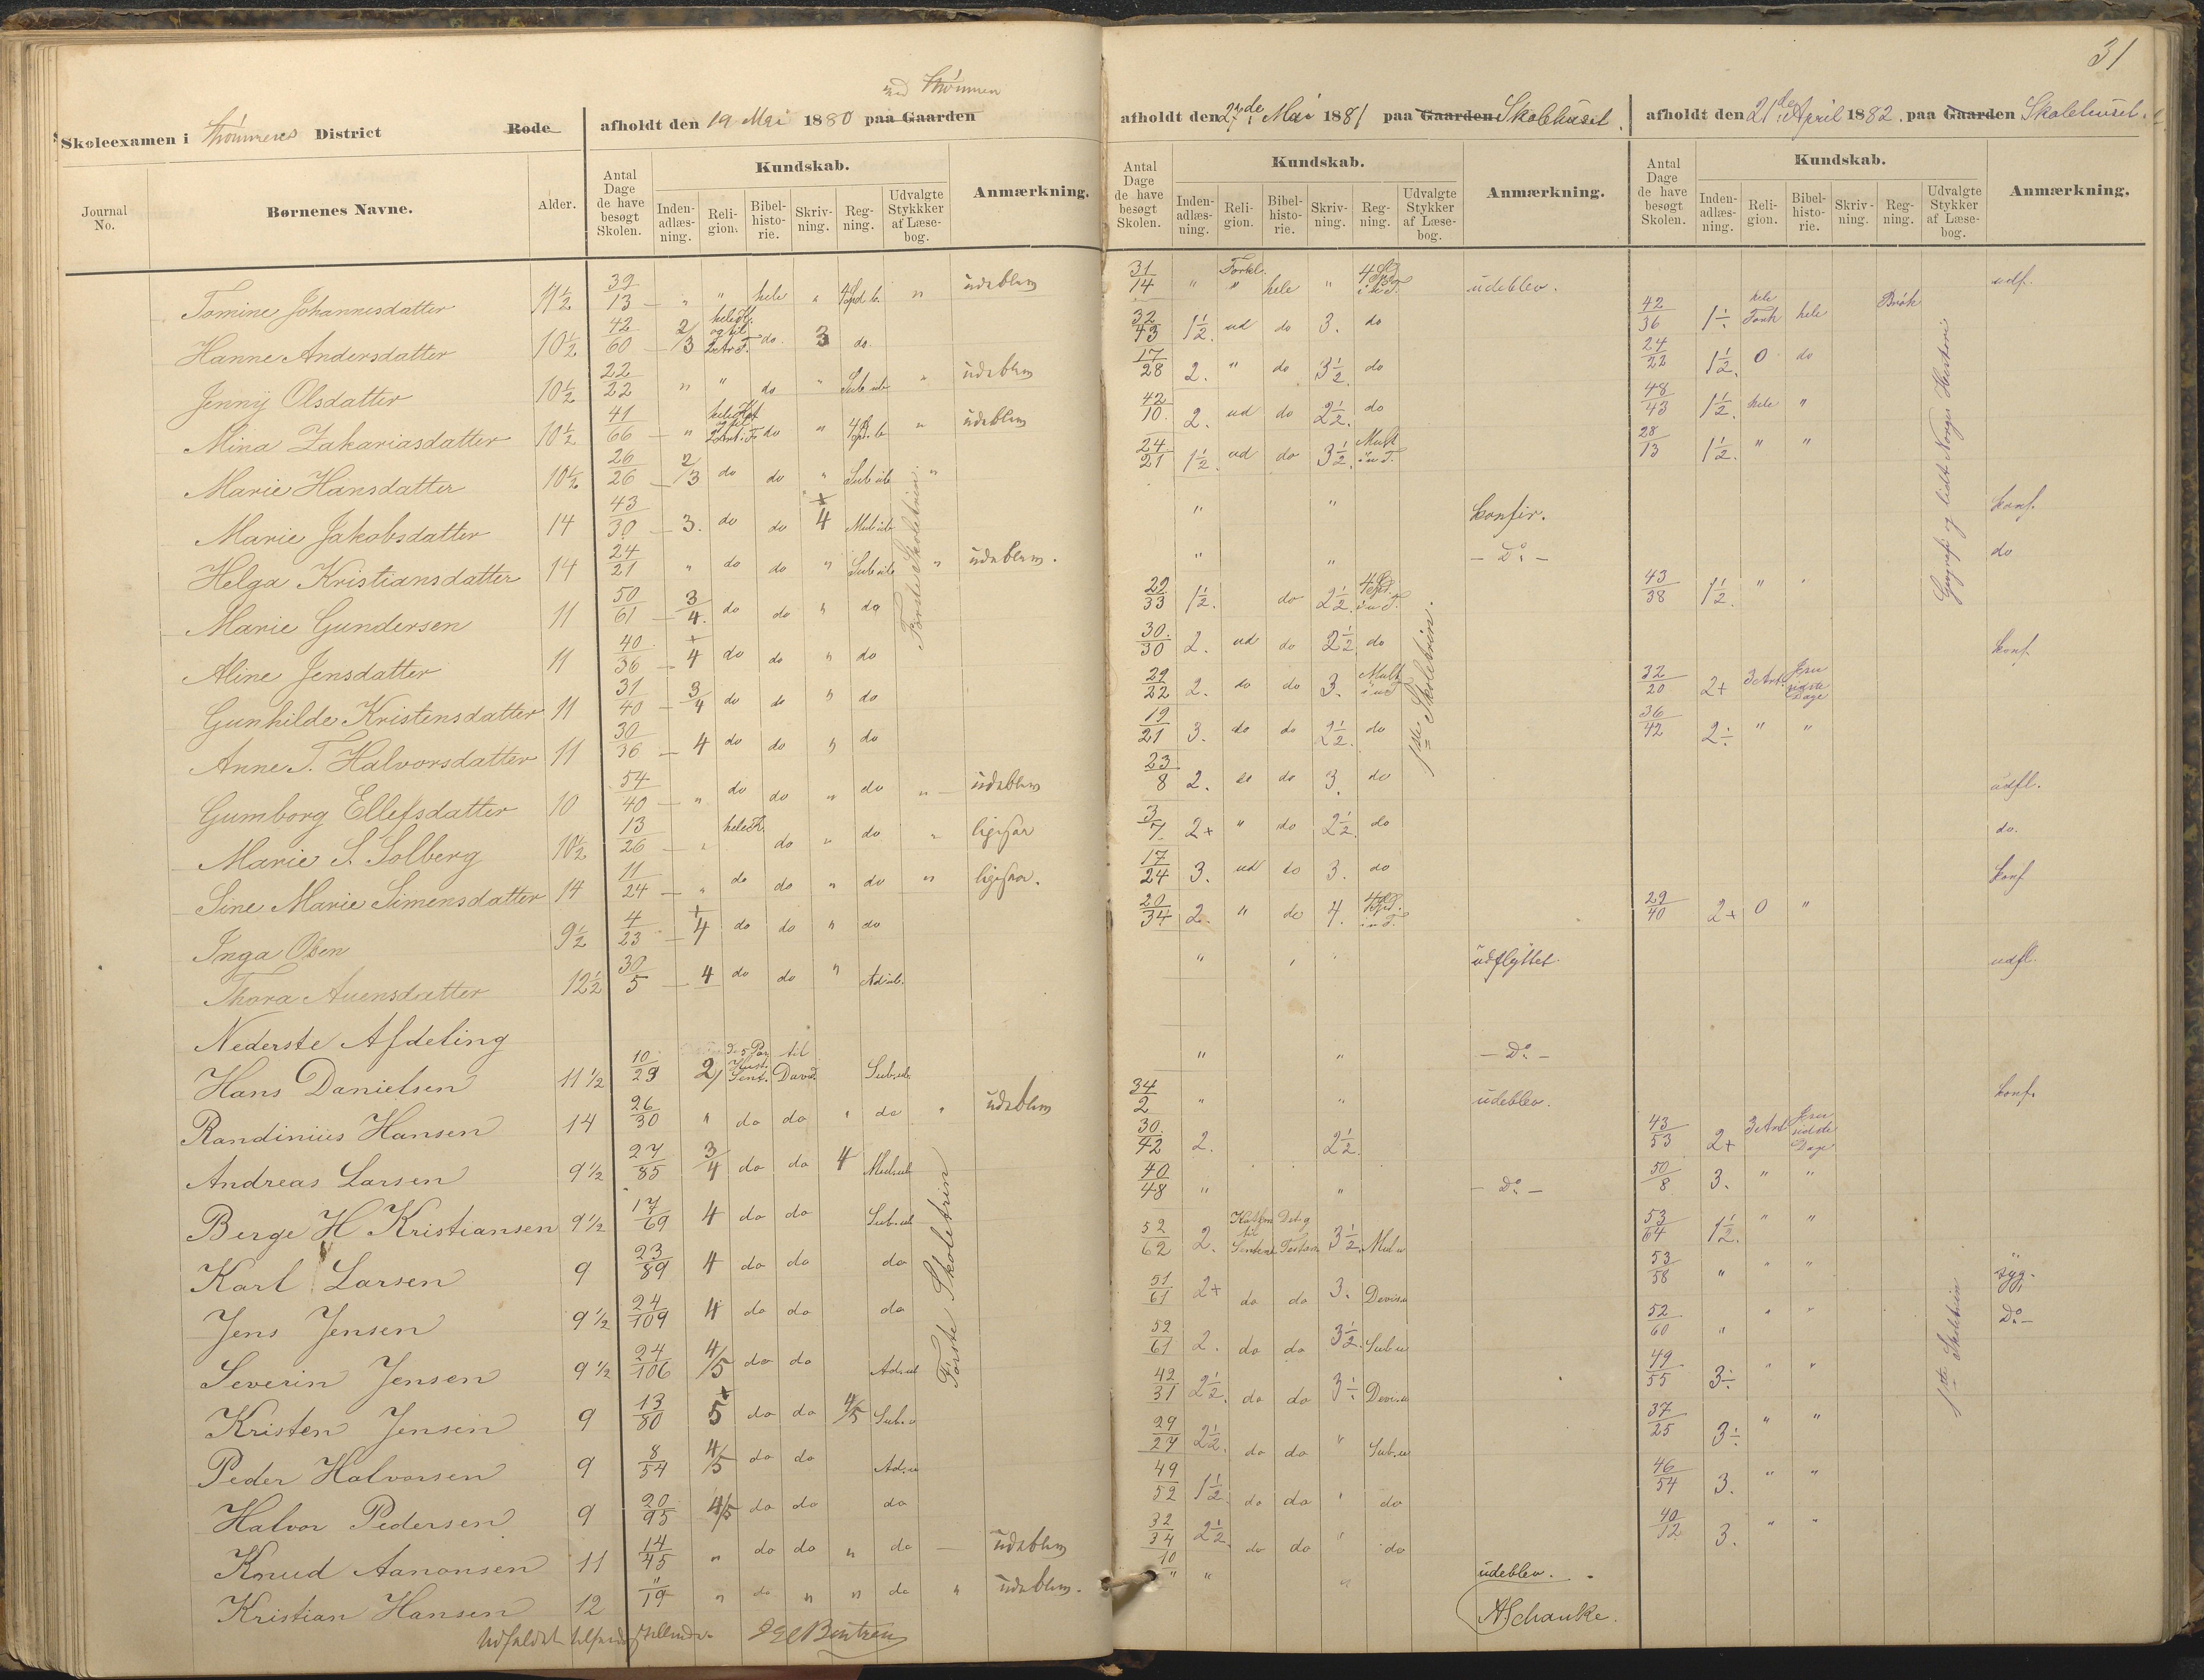 31
Skoleexamen i Strømmenes District Rode afholdt den 19 Mai 1880 paa Gaarden ved Strømmen
afholdt den 27de Mai 1881 paa Gaarden Skolehuset.
afholdt den 21de April 1882. paa Gaarden Skolehuset.
Journal No. Børnenes Navne. Alder. Antal Dage de have besøgt Skolen. Kundskab. Inden-adlæs-ning. Reli-gion. Bibel-histo-rie. Skriv-ning. Reg-ning. Udvalgte Stykkker af Læse-bog. Anmærkning.
Antal Dage de have besøgt Skolen. Kundskab. Inden-adlæs-ning. Reli-gion. Bibel-histo-rie. Skriv-ning. Reg-ning. Udvalgte Stykker af Læse-bog. Anmærkning.
Antal Dage de have besøgt Skolen. Kundskab. Inden-adlæs-ning. Reli-gion. Bibel-histo-rie. Skriv-ning. Reg-ning. Udvalgte Stykker af Læse-bog. Anmærkning.
Tomine Johannesdatter 11 1/2 39/13 " " hele " " udebleven 31/14 " Forkl. " hele " udeblev. udf.
Hanne Andersdatter 10 1/2 42/60 2/3 do. 3 do. 32/43 1 1/2. ud do 3. do 42/36 1÷ hele Fork hele Brøk
Jenny Olsdatter 10 1/2 22/22 " " do " Sub. ub " udebleven 17/28 2. " do 3 1/2 do 24/22 1 1/2. 0 do
Mina Zakariasdatter 10 1/2 41/66 " do " " udebleven 42/10. 2. ud do 2 1/2. do 48/43 1 1/2. hele "
Marie Hansdatter 10 1/2 26/26 2/3 do do " Sub ub " 24/21 1 1/2. ud do 3 1/2. Mult 28/13 1 1/2. " "
Marie Jakobsdatter 14 43/30 3. do do 4 Mul ub " " konfir. konf.
Helga Kristiansdatter 14 24/21 " do do " Sub ub " udebleven. " " - Do - do
Marie Gundersen 11 50/61 3/4. do do " do 29/33 1 1/2. do 2 1/2. 43/38 1 1/2. " "
Aline Jensdatter 11 40/36 4 do do " do 30/30 2. ud do 2 1/2 do konf
Gunhilde Kristensdatter 11 31/40 3/4 do do " do 29/22 2. do do 3. Mult 32/20 2+ 3 Art. Jesu sidste Dage
Anne T. Halvorsdatter 11 30/36 4 do do " do 19/21 3. do do 2 1/2. do 36/42 2÷ " "
Gumborg Ellefsdatter 10 54/40 " do do " do " udebleven 23/8 2. do do 3. do udfl.
Marie S. Solberg 10 1/2 13/26 " do " do " ligesaa 3/7 2+ " do 2 1/2 do do.
Sine Marie Simensdatter 14 11/24 " do do " do " ligesaa. 17/24 3. ud do 3. do konf
Inga Olsen 9 1/2 4/23 4 do do " do 20/34 2. " do 4. 29/40 2+ 0 "
Thora Auensdatter 12 1/2 30/5 4 do do " Ad ub. " " " udflyttet. udfl.
Nederste Afdeling
Hans Danielsen 11 1/2 10/29 2 til David Sub. ub " " - Do -
Randinius Hansen 14 26/30 " do do " do " udebleven 34/2 " " udeblev. konf.
Andreas Larsen 9 1/2 27/85 3/4 do do 4 Mul. ub 30/42 2. 2 1/2. 43/53 2+ 3 Art Jesu sidste Dage
Berge H Kristiansen 9 1/2 17/69 4 do do Sub. ub 40/48 " " - Do - 50/8 3. " "
Karl Larsen 9 23/89 4 do do do 52/62 2. 3 1/2 Mul u 53/64 1 1/2. " "
Jens Jensen 9 1/2 24/109 4 do do do 51/61 2+ do do 3. Devis. u 53/58 " " " syg.
Severin Jensen 9 1/2 24/106 4/5 do do Ad. ub 52/61 2. do do 3 1/2. Sub u 52/60 " " " Do -
Kristen Jensen 9 13/80 5 do do 4/5 Sub. u 42/31 2 1/2. do do 3÷ Devis. u 49/55 3÷ " "
Peder Halvorsen 9 8/54 4/5 do do Ad. u 29/27 2 1/2. do do " Sub. u 37/25 3÷ " "
Halvor Pedersen 9 20/95 4/5 do do do 49/52 1 1/2. do do " do 46/54 3. " "
Knud Aanonsen 11 14/45 " do do " do udebleven 32/34 2 1/2. do do " do 40/12 3. " "
Kristian Hansen 12 "/19 " do " " do " udebleven. 10/" " " udeblev.
Første Skoletrin.
Første Skoletrin
1ste Skoletrin.
Geografi og lidt Norges Historie
1ste Skoletrin
Udfaldet
A Schanke.